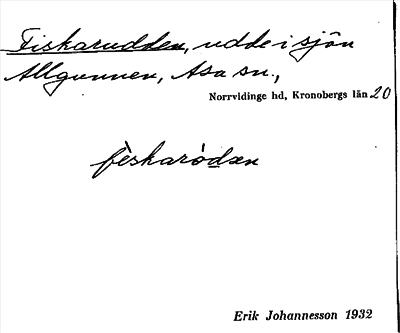 Fiskarudden, udde i sjön
Allgunnen, Asa sn.,
Norrvidinge hd, Kronobergs län 20
fèskaròdæn
Erik Johannesson 1932